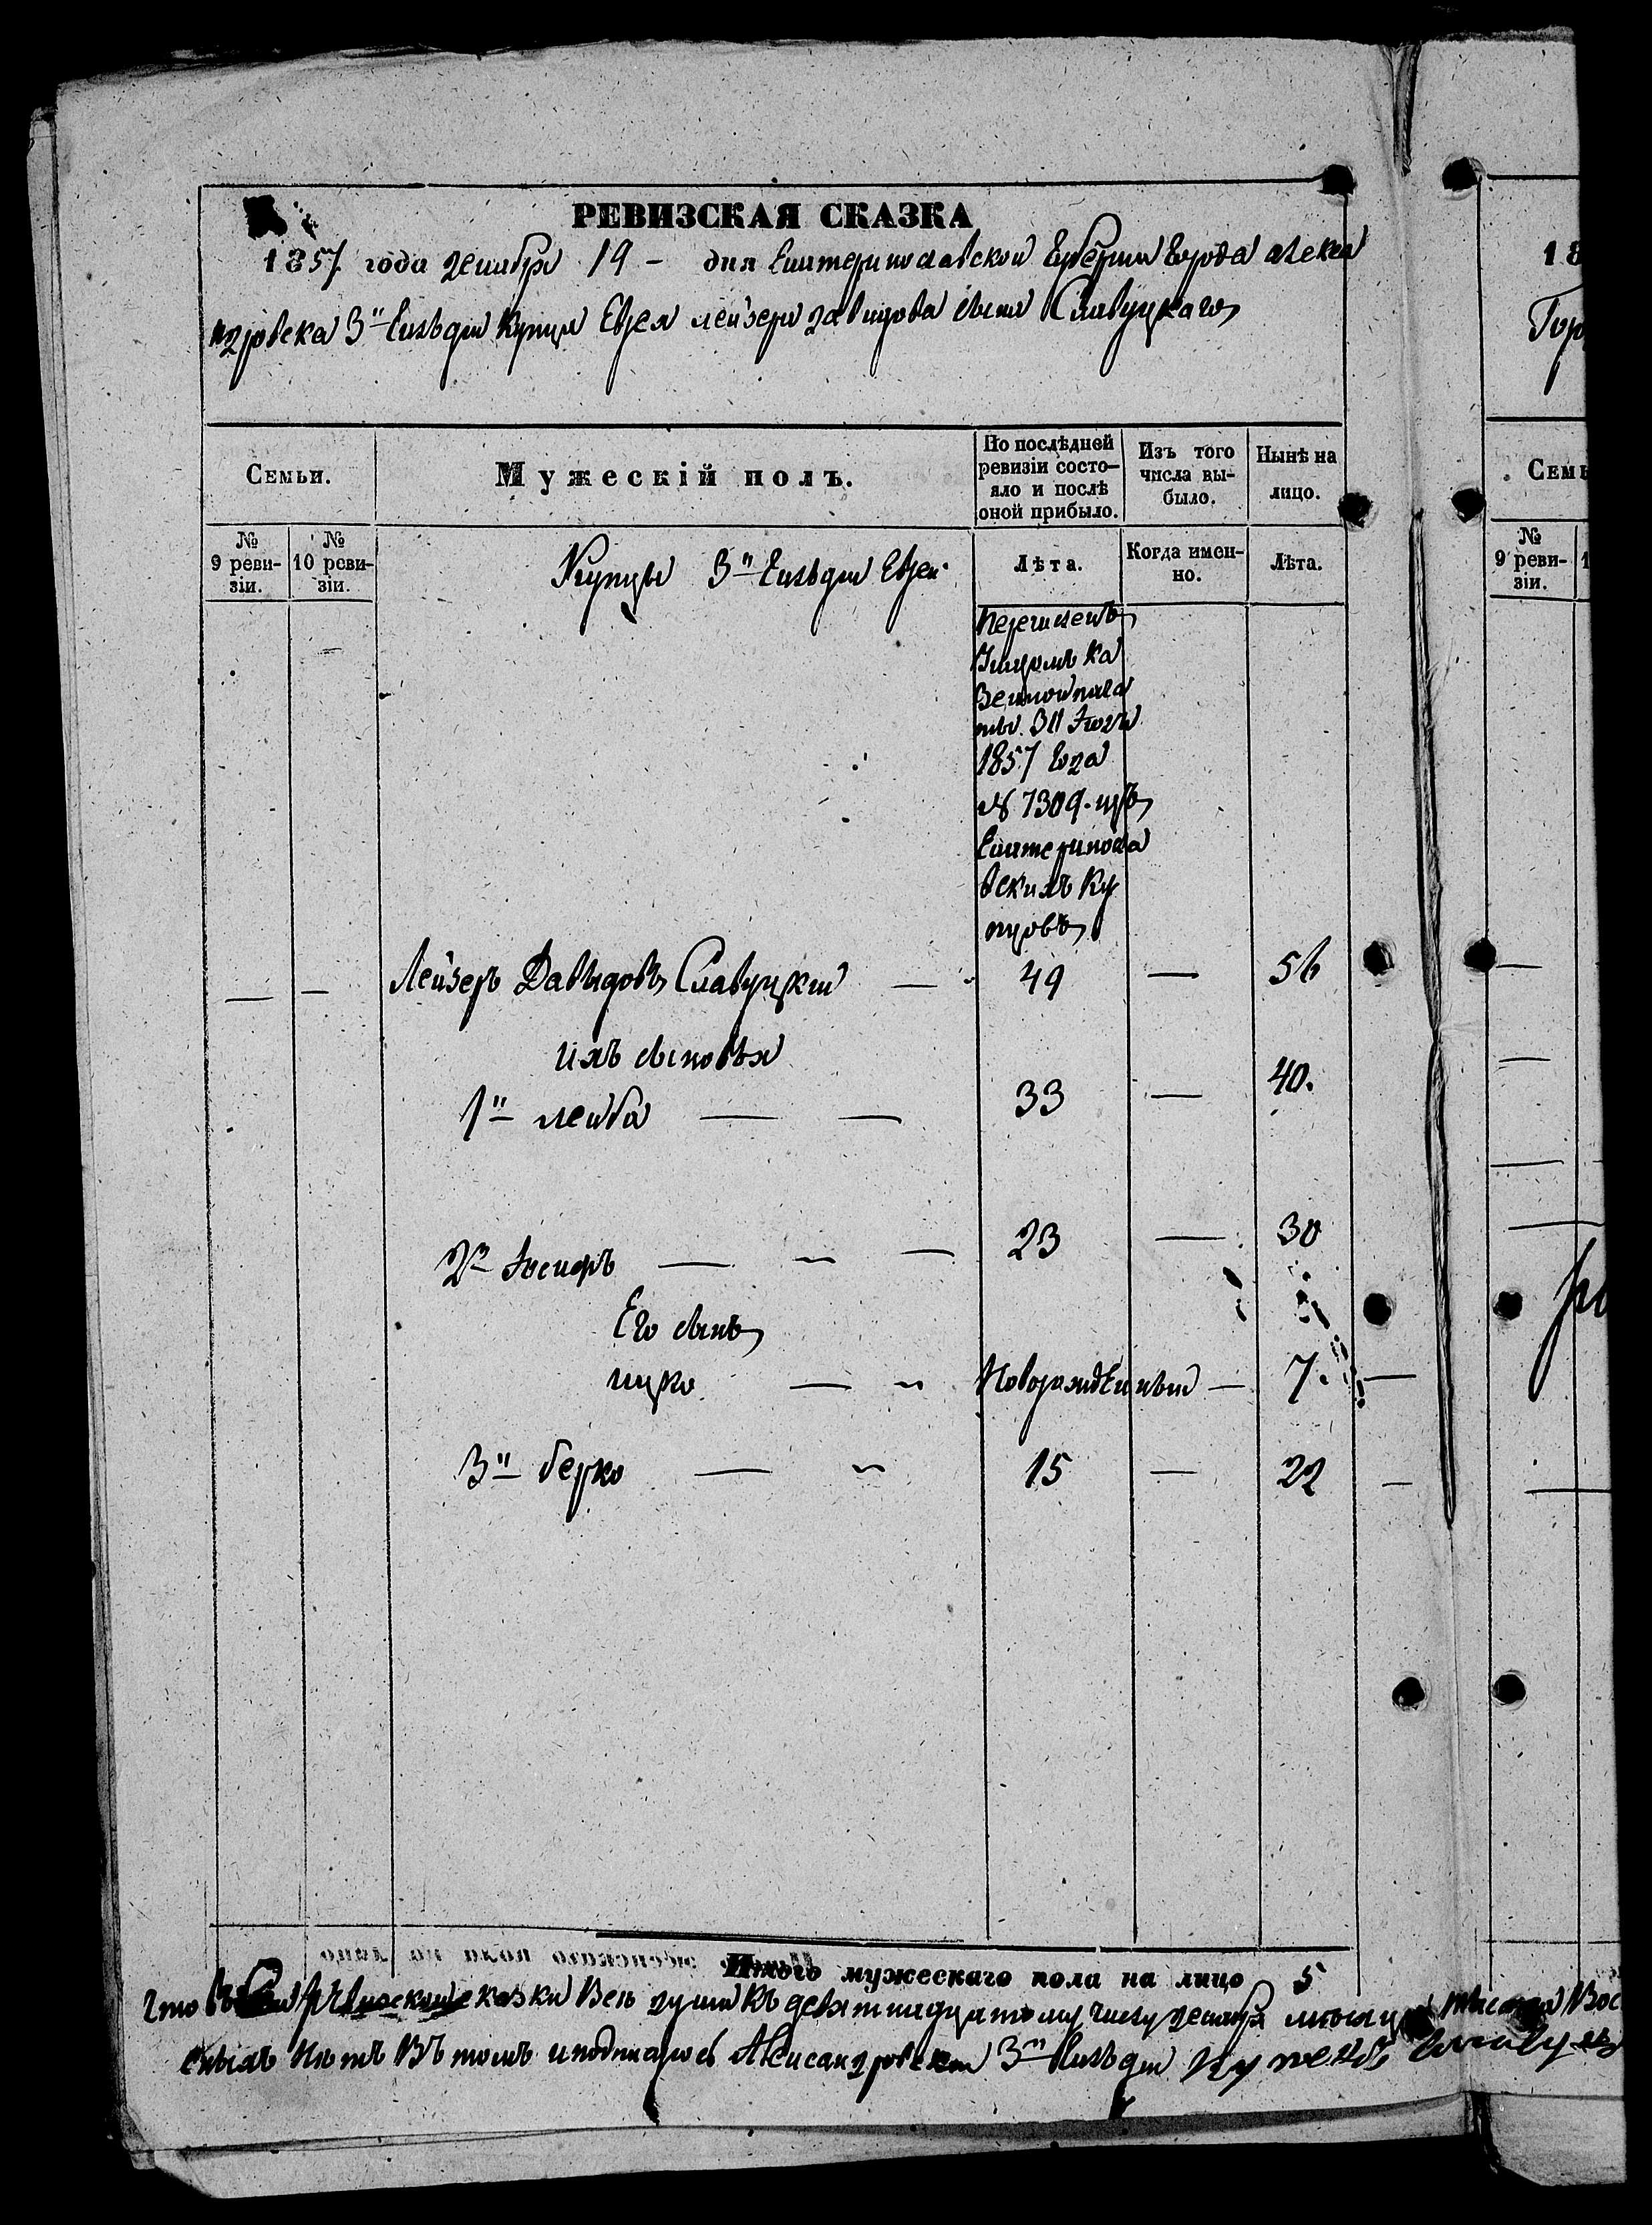 РЕВИЗСКАЯ СКАЗКА
1857 года декабря 19 - дня Екатеринославской Губернии Города Алекса
ндровска 3й Гильдии Купца Еврея Лейзера Давидова сына Славуцкаго
Семьи.
Мужескій полъ.
По послѣдней ревизіи состо-
яло и послѣ
оной прибыло.
Изъ того
числа вы-
было.
Нынѣ на
лицо.
№
9 реви-
зіи.
№
10 реви-
зіи.
Купцы 3й Гильдіи Евреи
Лѣта.
Когда имен-
но.
Лѣта.
Перечисленъ
Указомъ Ка
зенной пала
ты 31 Іюля
1857 Года
№ 7309. изъ
Екатериносла
вскихъ Ку
пцовъ
— — Лейзеръ Давыдовъ Славуцкій — 49 — 56
Ихъ сыновья
1й Лейба — — 33 — 40.
2й Іосифъ — — 23 — 30
Его сынъ
Ицко — Новорожденный — 7. —
3й Берко — 15 — 22 —
Итого мужескаго пола на лицо 5
Что въ сей ревизской сказки все души къ девятнадцатому числу декабря месяца тысяча Вос
нѣтъ Въ томъ и подписуюсь Александровскій 3й Гильдіи
18
Гор
Семь
№
9 реви-
зіи.
1